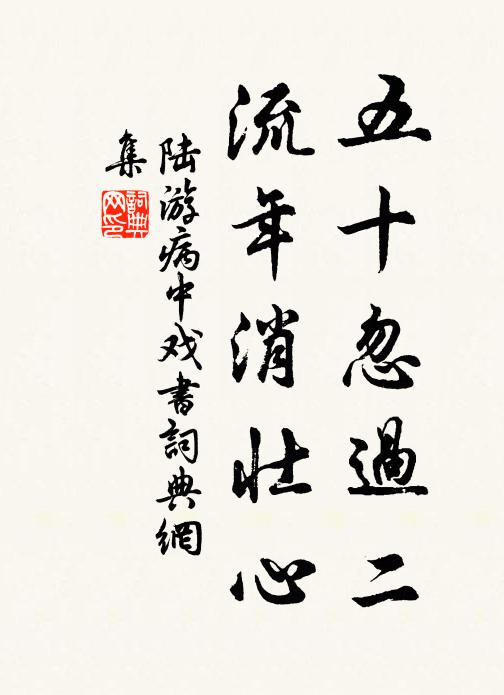 五十忽過二
流年消壮心
陆游病中戏書詞典網
集
詞典網印